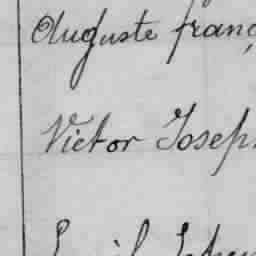 Auguste franç
Victor Joseph